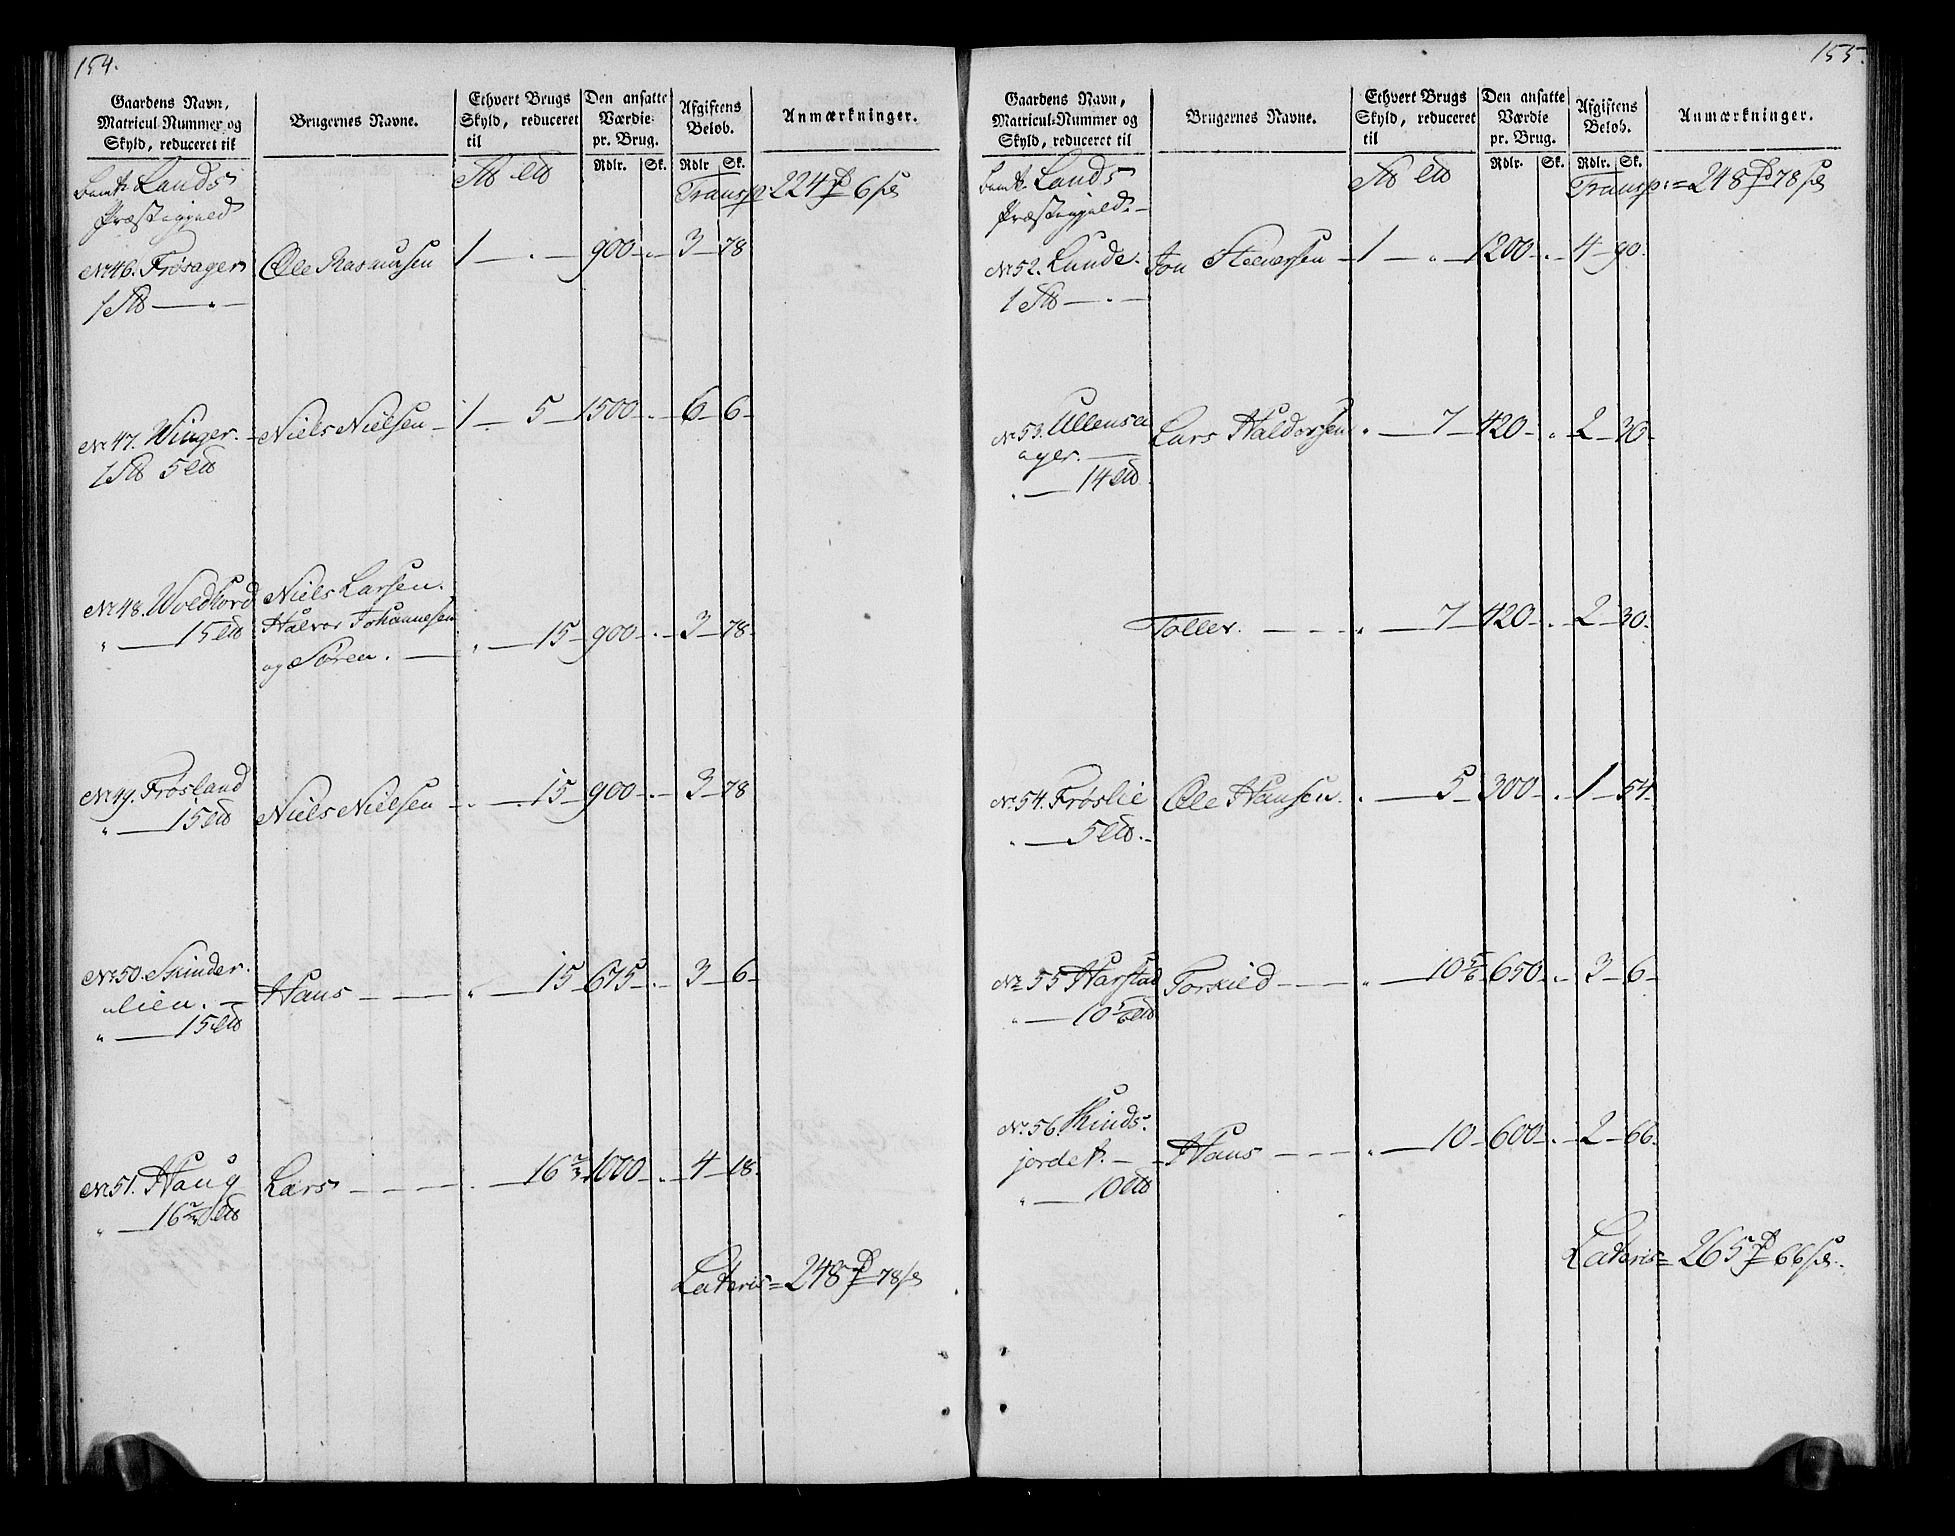 154.
Gaardens Navn,
Matricul-Nummer og
Skyld, reduceret til
Brugernes Navne.
Ethvert Brugs
Skyld, reduceret
til
Den ansatte
Værdie
pr. Brug.
Rdlr. Sk.
Afgiftens
Beløb.
Rdlr Sk.
Anmærkninger.
Lands
Præstegjeld
Transp: 224 6
No 46. Frøsager Ole Rasmusen 1 — . — 900 - . - 3 - 78
1
No 47. Winger. Niels Nielsen 1 - 5 - 1500 - . - 6 - 6 -
1 5
No 48. Woldhord Niels Larsen.
" — 15 Halvor Johannesen " — 15 - 900 - . - 3 - 78 -
og Søren. —
No 49. Frøsland
" — 15 Niels Nielsen - . — 15 - 900 - . - 3 - 78
No 50. Skinder-
lien. — Hans — — — " — 15 - 675 - . - 3 - 6 -
" — 15
No 51. Haug Lars — — — . — 16 2/3 1000 - . - 4 - 18 -
" — 16 2/3
Lateris = 248 78
155.
Gaardens Navn,
Matricul-Nummer og
Skyld, reduceret til
Brugernes Navne.
Ethvert Brugs
Skyld, reduceret
til
Den ansatte
Værdie
pr. Brug.
Rdlr. Sk.
Afgiftens
Beløb.
Rdlr. Sk.
Anmærkninger.
Lands
Præstegjeld. —
Transp: = 248 78
No 52. Lunde. Jon — 1 — " — 1200 - . - 4 - 90 -
1
No 53. Ullensa Lars Haldorsen . — 7 - 420 - . 2 - 30 -
ager. —
. — 14
Toller. — — — . — 7 - 420 - . - 2 - 30 -
No 54. Frøslie Ole Hansen. . — 5 - 300 - . - 1 - 54 -
" — 5
No 55 Harstad Torkild — — — " — 10 5/6 650 - . - 3 - 6 -
" — 10 5/6
No 56. Skinds-
jordet. — Hans — — — . — 10 - 600 - . - 2 - 66 -
" — 10
Lateris = 265 66